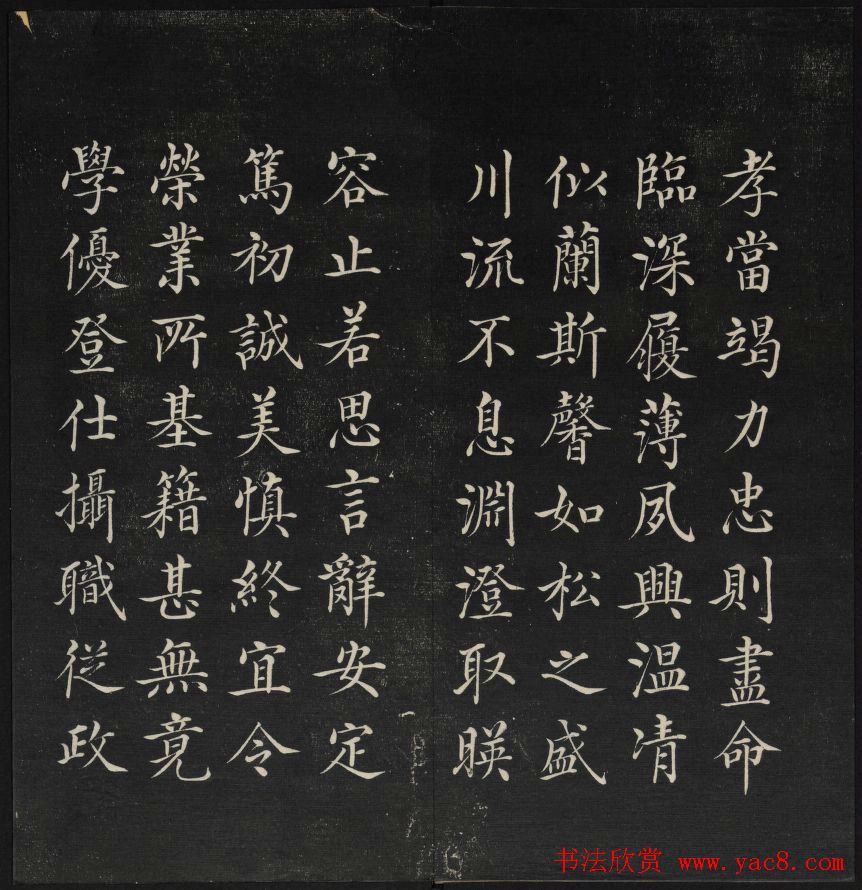 孝當竭力忠則盡命
臨深履薄夙興温凊
似蘭斯馨如松之盛
川流不息淵澄取暎
容止若思言辭安定
篤初誠美慎終宜令
榮業所基籍甚無竟
學優登仕攝職從政
书法欣赏 www.yac8.com